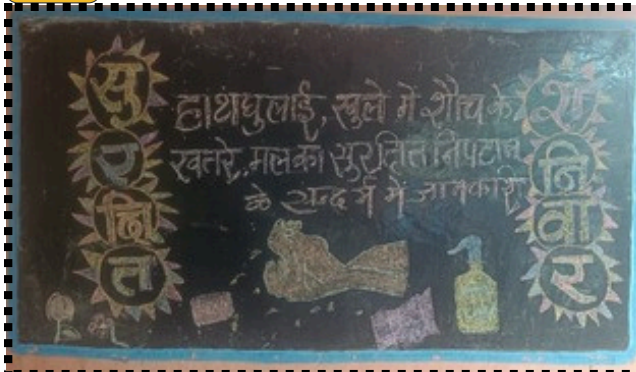 सुरक्षित
हाथ धुलाई, खुले में शौच के
खतरे, मल का सुरक्षित निपटान
के सन्दर्भ में जानकारी
शनिवार